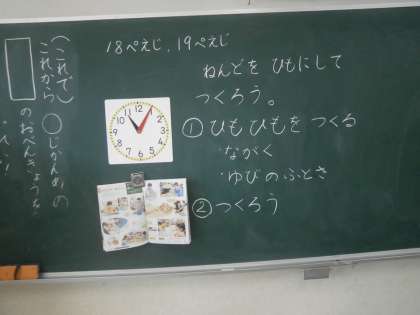 18ぺえじ、19ぺえじ
ねんどを ひもにして
つくろう。
①ひもひもを つくる
・ながく
・ゆびのふとさ
②つくろう
12
1
2
3
4
5
6
7
8
9
10
11
(これで)
これから ○じかんめの
のおべんきょうを